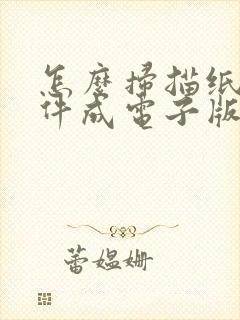 怎麼掃描紙
件成電子版
蕾媼姍